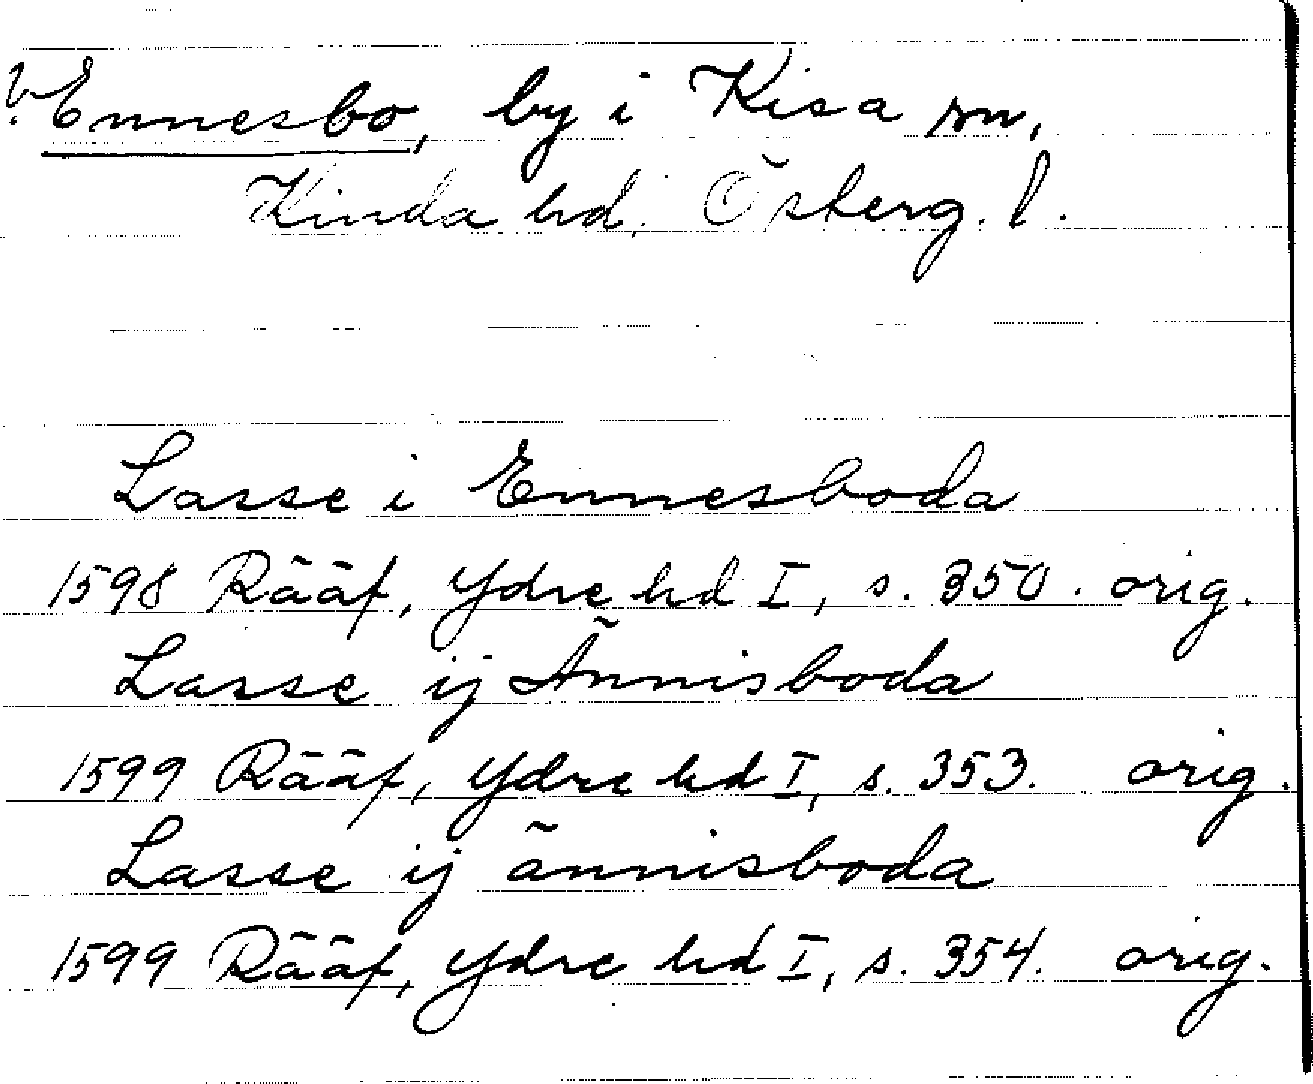 v. Ennesbo, by i Kisa sn,
Kinda hd. Österg. l.
Lasse i Ennesboda
1598 Rääf, Ydre hd I, s. 350. orig.
Lasse ij Ännisboda
1599 Rääf, Ydre hd I, s. 353. orig.
Lasse ij ännisboda
1599 Rääf, Ydre hd I, s. 354. orig.